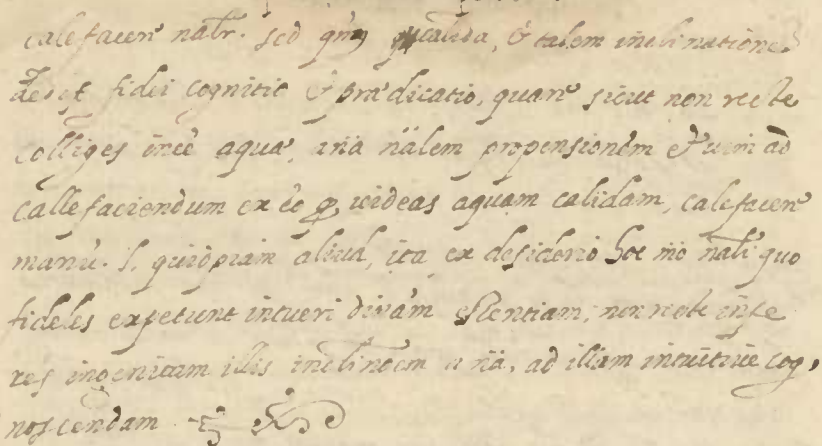 calefacere natr. sed qm calida, & talem inclinatione
dedit fidei cognitio & prædicatio, quare sicut non recte
colliges inee aquæ, a nä nälem propensionem & uim ad
callefaciendum ex eo qp uideas aquam calidam, calefacere
manu. l. quidpiam aliud, ita ex desiderio hoc mo nali quo
fideles expetunt intueri diuam essentiam; non recte infe
res ingenitam illis inclinoem a nä, ad illam intuitiue cog,
noscendam